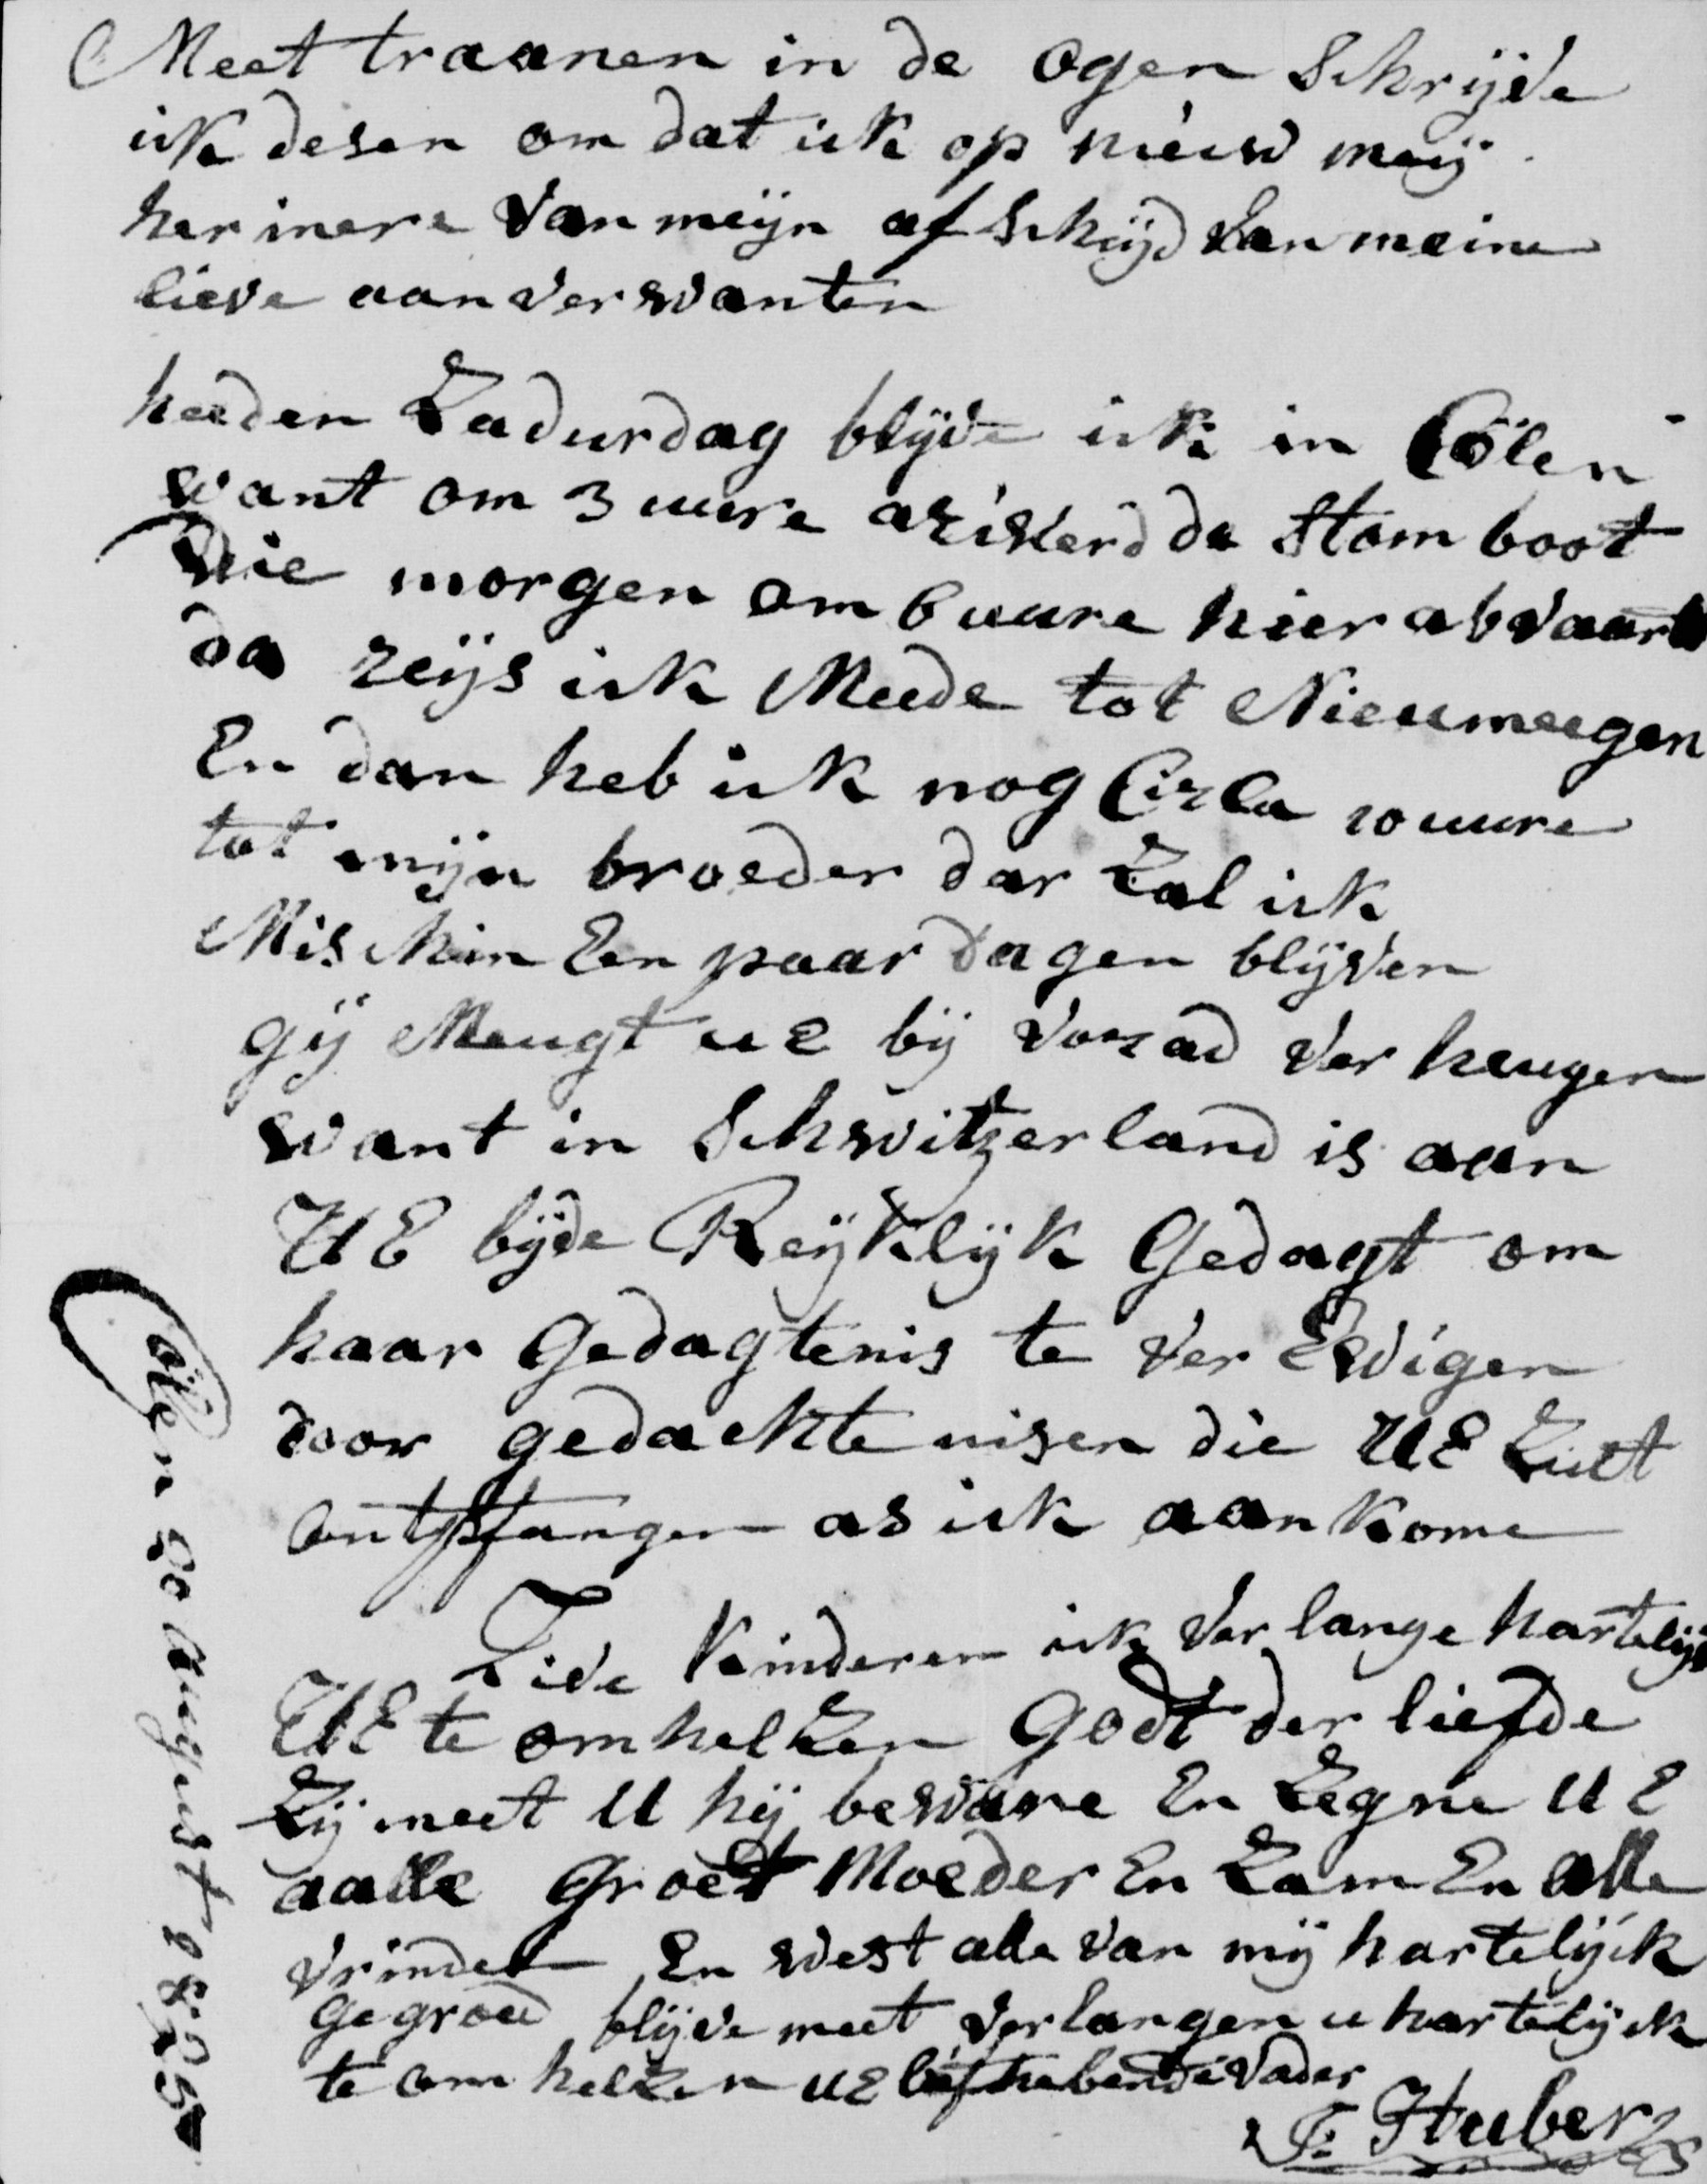 Meet traanen in de ogen Schrijve
ick desen om dat ick op nieuw meij
herinere van meijn afscheijd van meine
lieve aanverwanten
heeden Zadurdag blijve ick in Cölen
want om 3 uure arivierd de Stom boot
die morgen om 6 uure hier abvaart
da reijs ick Meede tot Nieumeegen
En dan heb ick nog Circa 10 uure
tot mijn broeder dar Zal ick
Mischien Een paar dagen blijven
gij Meugt uE bij vorad ver heugen
want in Schwitzerland is aan
UE bijde Reijklijk Gedagt om
haar Gedagtenis te ver Ewigen
door gedachtenisen die UE Zult
ontpfangen as ick aan kome
Live Kinderen ick verlange hartelijk
UE te omhelzen Godt der liefde
Zij meet U hij beware En Zegne UE
aalle Groet Moeder En Zam En alle
vrinden En west alle van mij hartelijck
gegroed blijve meet verlangen u hartelijck
te om helzen uE liefhabende vader
J. Huber
Cöllen 20 August 1825